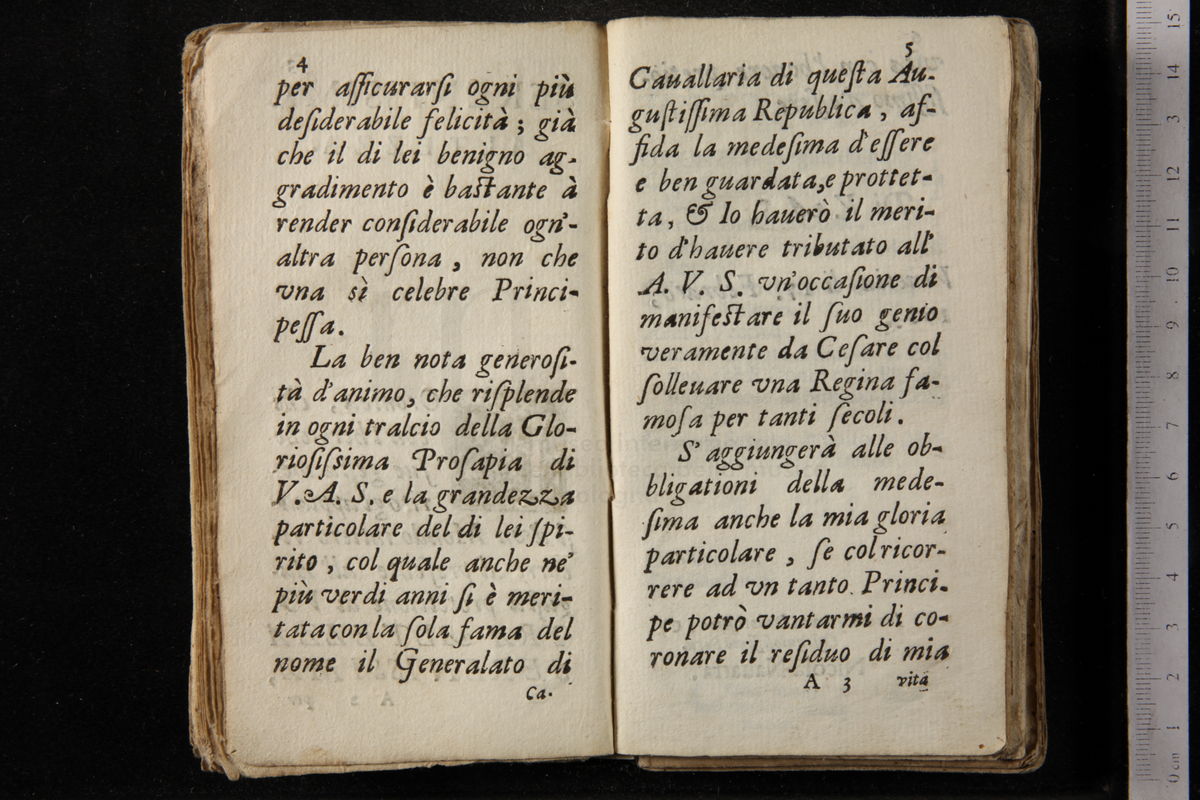 4
per aſſicurarſi ogni più
deſiderabile felicità ; già
che il di lei benigno ag-
gradimento è baſtante à
render conſiderabile ogn'-
altra perſona , non che
vna sì celebre Princi-
peſſa.
La ben nota generoſi-
tà d'animo, che riſplende
in ogni tralcio della Glo-
rioſiſsima Proſapia di
V. A. S. e la grandezza
particolare del di lei ſpi-
rito , col quale anche ne'
più verdi anni ſi è meri-
tata con la ſola fama del
nome il Generalato di
Ca-
5
Cauallaria di queſta Au-
guſtiſſima Republica , af-
fida la medeſima d'eſſere
e ben guardata, e prottet-
ta , & Io hauerò il meri-
to d'hauere tributato all'
A. V. S. vn'occaſione di
manifeſtare il ſuo genio
veramente da Ceſare col
ſolleuare vna Regina fa-
moſa per tanti ſecoli .
S'aggiungerà alle ob-
bligationi della mede-
ſima anche la mia gloria
particolare , ſe col ricor-
rere ad vn tanto Princi-
pe potrò vantarmi di co-
ronare il reſiduo di mia
A 3 vita
15
14
13
12
11
10
9
8
7
6
5
4
3
2
1
0 cm